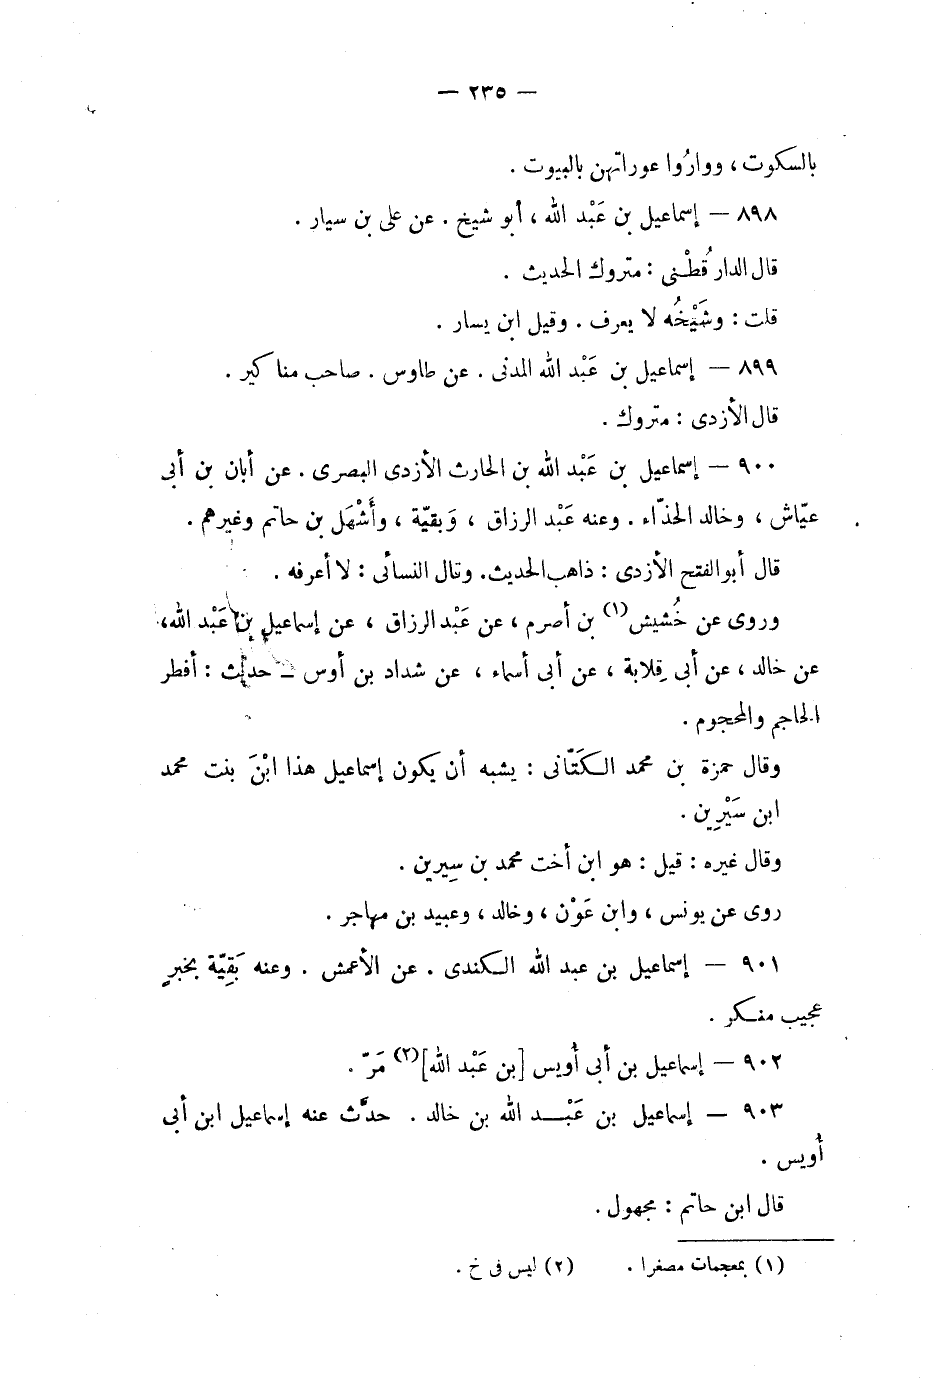 — ٢٣٥ —
بالسكوت ، وواروا عوراتهن بالبيوت .
٨٩٨ — إسماعيل بن عَبْد الله ، أبو شيخ . عن على بن سيار .
قال الدارقُطْنى : متروك الحديث .
قلت : وشَيْخُه لا يعرف . وقيل ابن يسار .
٨٩٩ — إسماعيل بن عَبْد الله المدنى . عن طاوس . صاحب مناكير .
قال الأزدى : متروك .
٩٠٠ — إسماعيل بن عَبْد الله بن الحارث الأزدى البصرى . عن أبان بن أبى
عيّاش ، وخالد الحذّاء . وعنه عَبْد الرزاق ، وَبقيّة ، وأَشْهَل بن حاتم وغيرهم .
قال أبو الفتح الأزدى : ذاهب الحديث. وقال النسائى : لا أعرفه .
وروى عن خُشيش(١) بن أصرم ، عن عَبْد الرزاق ، عن إسماعيل بن عَبْد الله،
عن خالد ، عن أبى قِلابة ، عن أبى أسماء ، عن شداد بن أوس — حديث : أفطر
الحاجم والمحجوم .
وقال حمزة بن محمد الكَتّانى : يشبه أن يكون إسماعيل هذا ابْنَ بنت محمد
ابن سَيْرِين .
وقال غيره : قيل : هو ابن أخت محمد بن سِيرين .
روى عن يونس ، وابن عَوْن ، وخالد ، وعبيد بن مهاجر .
٩٠١ — إسماعيل بن عبد الله الكندى . عن الأعمش . وعنه بَقِيّة بخبرٍ
عجيب منكر .
٩٠٢ — إسماعيل بن أبى أُويس [بن عَبْد الله](٢) مَرّ .
٩٠٣ — إسماعيل بن عَبْد الله بن خالد . حدَّث عنه إسماعيل ابن أبى
أُويس .
قال ابن حاتم : مجهول .
(١) بمعجمات مصغرا . (٢) ليس فى خ .